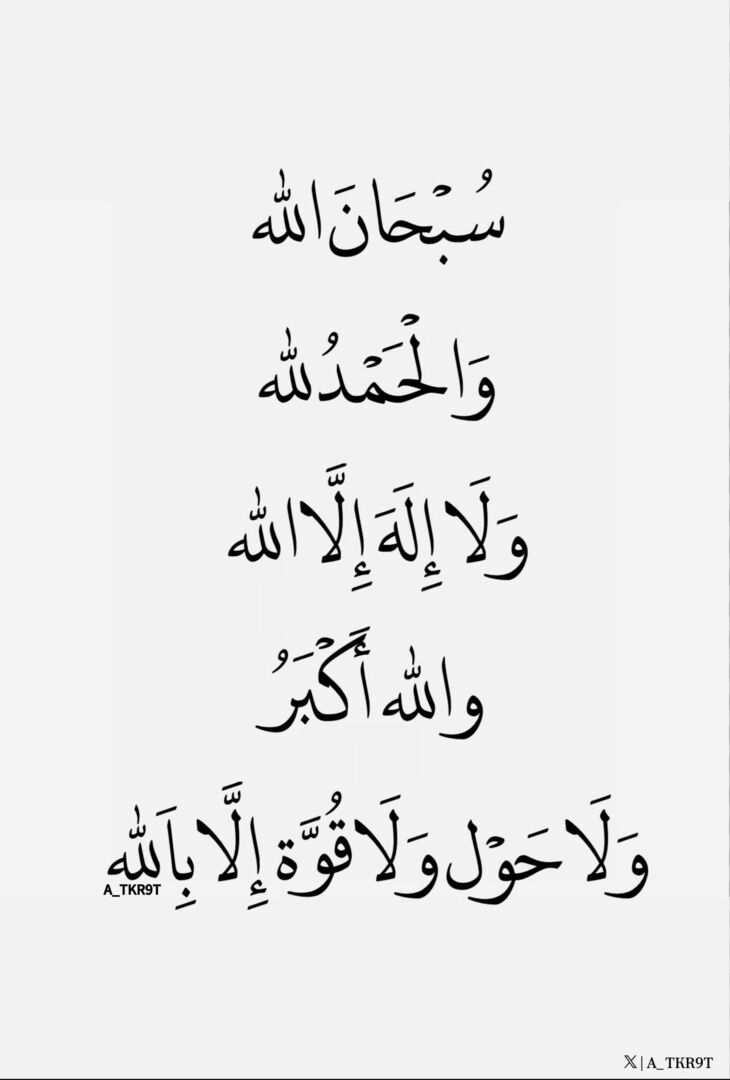 سُبْحَانَ الله
وَالْحَمْدُ لله
وَلَا إِلَهَ إِلَّا الله
والله أَكْبَرُ
وَلَا حَوْل وَلَا قُوَّة إِلَّا بِاَلله
A_TKR9T
𝕏 | A_TKR9T